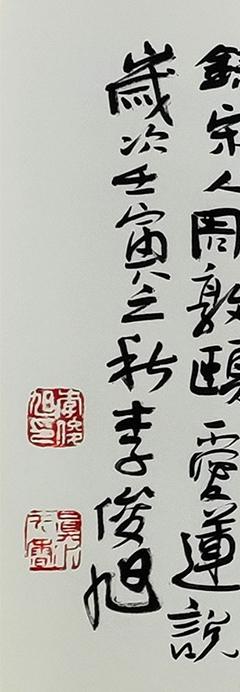 錄宋人周敦頤愛蓮說
歲次壬寅之秋李俊旭
李俊旭印